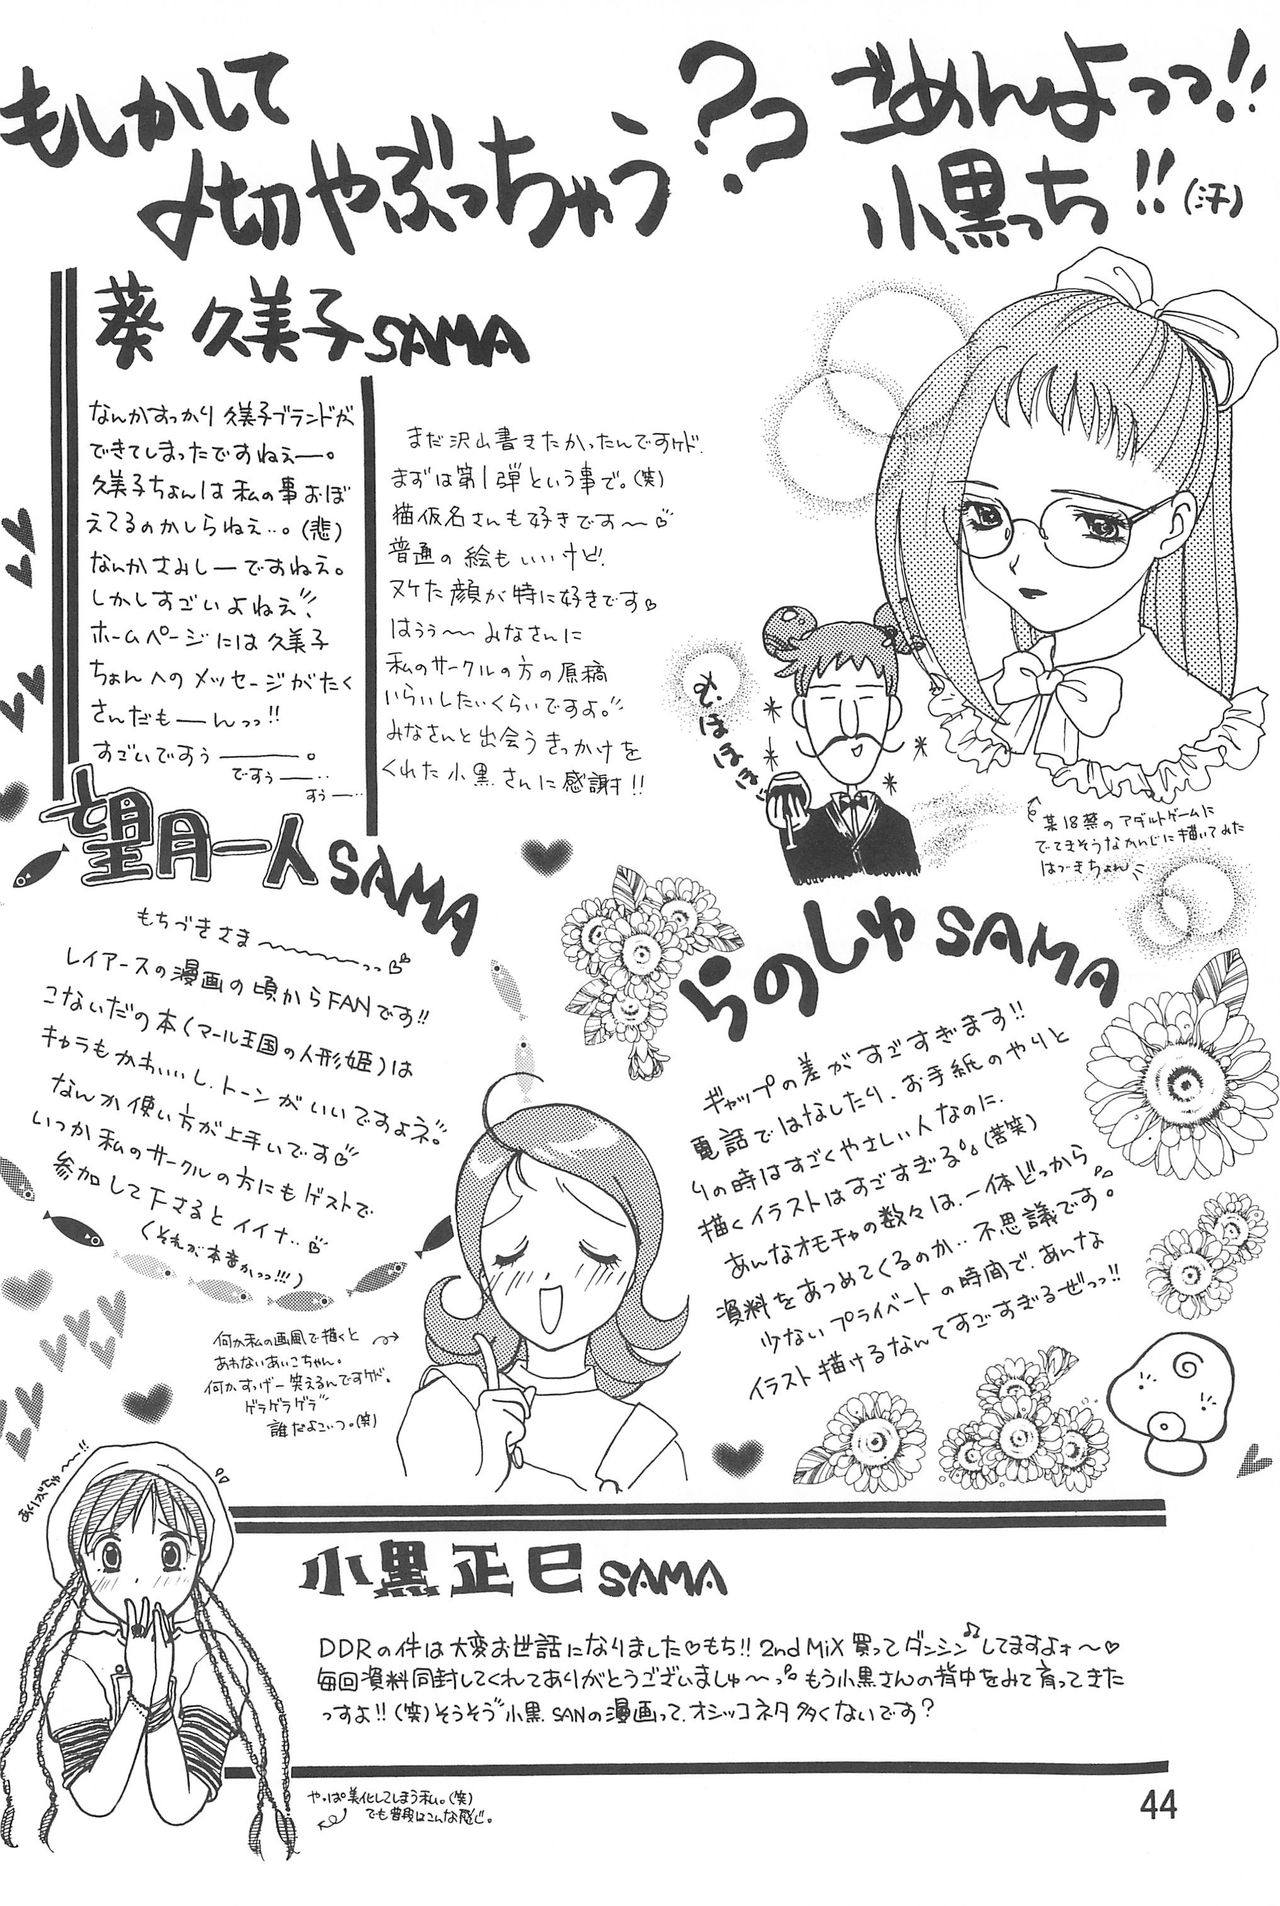 もしかして
〆切やぶっちゃう??
ごめんよっっ!!
小黒っち!!(汗)
葵 久美子SAMA
なんかすっかり久美子ブランドが
できてしまったですねえー。
久美子ちょんは私の事おぼ
えてるのかしらねえ…。(悲)
なんかさみしーですねえ。
しかしすごいよねえ!!
ホームページには久美子
ちょんへのメッセージがたく
さんだもーんっっ!!
すごいですぅー。
ですぅー…
すぅー…
まだ沢山書きたかったんですケド、
まずは第1弾という事で。(笑)
猫仮名さんも好きです〜♡
普通の絵もいいけど、
ヌケた顔が特に好きです♡
はぅぅ〜みなさんに
私のサークルの方の原稿
いらいしたいくらいですよ。
みなさんと出会うきっかけを
くれた小黒さんに感謝!!
むほほほほ
某18禁のアダルトゲームに
でてきそうなかんじに描いてみた
はづきちょん
望月一人SAMA
もちづきさま〜っっ♡
レイアースの漫画の頃からFANです!!
こないだの本(マール王国の人形姫)は
キャラもかわいいし、トーンがいいですよネ。
なんか使い方が上手いです♡
いつか私のサークルの方にもゲストで
参加して下さるとイイナ…♡
(それが本音かっっ!!!)
何か私の画風で描くと
あわないあいこちゃん。
何か、すっげー笑えるんですケド。
ゲラゲラゲラ
誰だよこいつ。(笑)
らのしゅSAMA
ギャップの差がすごすぎます!!
電話ではなしたり、お手紙のやりと
りの時はすごくやさしい人なのに、
描くイラストはすごすぎる。(苦笑)
あんなオモチャの数々は、一体どっから
資料をあつめてくるのか‥不思議です。
少ないプライベートの時間で、あんな
イラスト描けるなんてすごすぎるぜっっ!!
ありがちゅ〜!!
小黒正巳SAMA
DDRの件は大変お世話になりました♡もち!!2nd MiX買ってダンシン♪してますよォ〜♡
毎回資料同封してくれてありがとうございましゅ〜っ。もう小黒さんの背中をみて育ってきた
っすよ!!(笑)そうそう小黒SANの漫画って、オシッコネタ多くないです?
やっぱ美化してしまう私。(笑)
でも普段はこんな感じ。
44